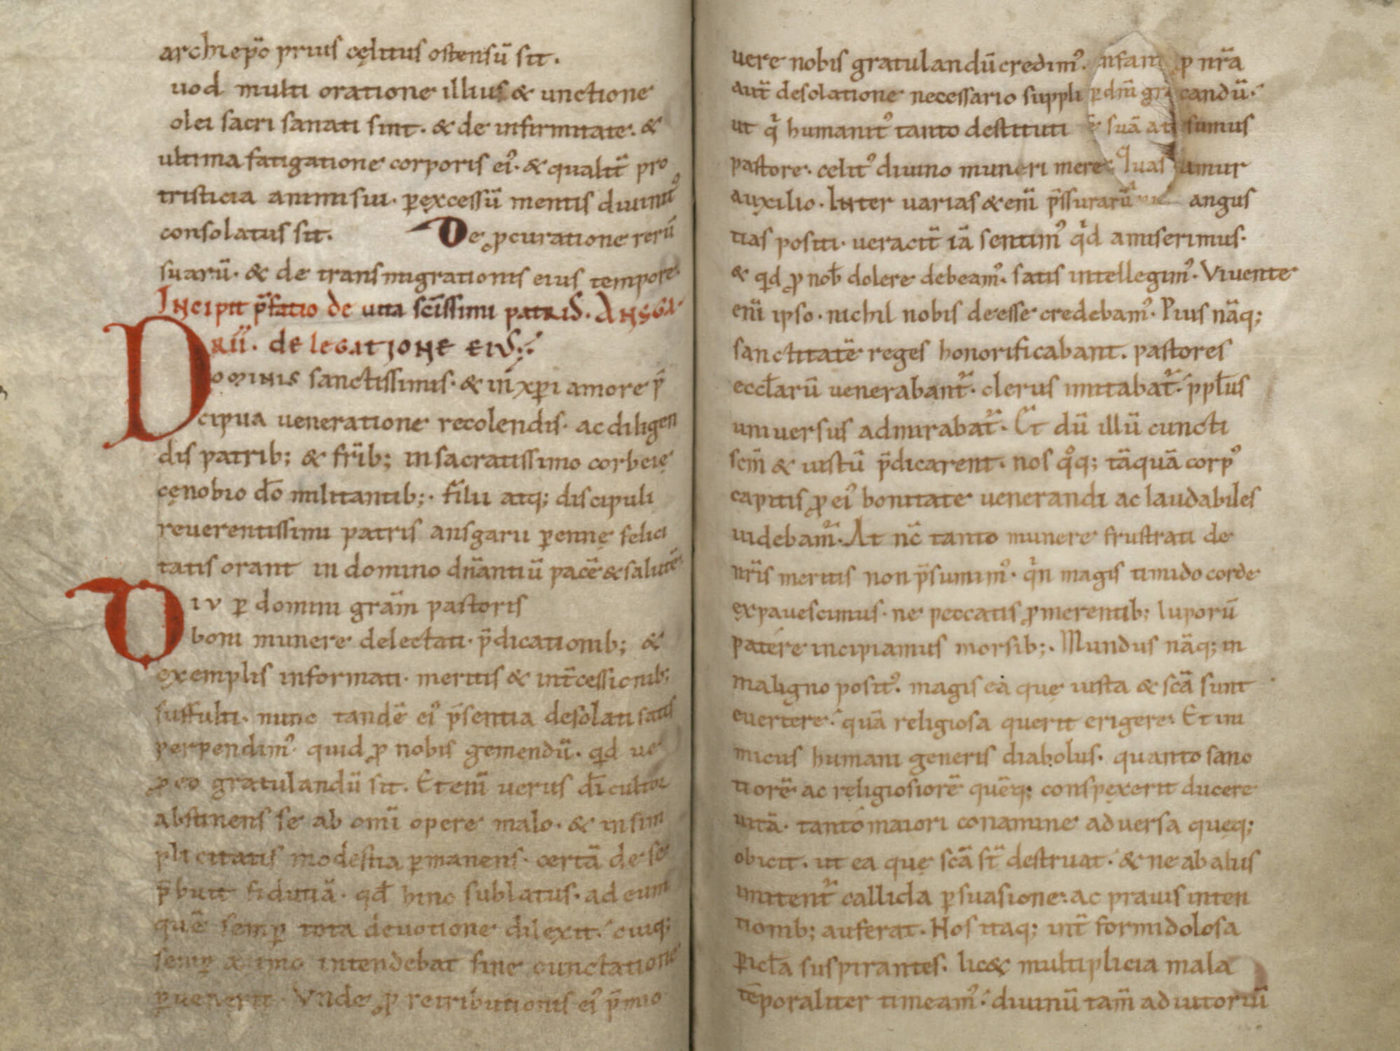 archiep̄o prius cęlitus ostensū sit.
uod multi oratione illius & unctione
olei sacri sanati sint. & de infirmitate. &
ultima fatigatione corporis ei᷒. & qualit̄ pro
tristicia animi sui. ꝑ excessū mentis diuinit᷒
consolatus sit. De ꝓcuratione rerū
suarū. & de transmigrationis eius tempore.
Incipit p̄fatio de uita sc̄issimi patris. Ansga
rii. de legatione eius:
Dominis sanctissimis. & in xp̄i amore p̄
cipua ueneratione recolendis. ac diligen
dis patrib; & fr̄ib; in sacratissimo corbeię
cęnobio dō militantib;. filii atq; discipuli
reuerentissimi patris ansgarii ꝑennę felici
tatis orant in domino dn̄antiū pacē & salutē.
Diu ꝑ domini grām pastoris
boni munere delectati. p̄dicationib; &
exemplis informati. meritis & int̄cessionib;
suffulti. nunc tandē ei᷒ p̄sentia desolati satis
perpendim᷒. quid ꝓ nobis gemendū. qd̄ ue
ꝓ eo gratulandū sit. Etenī uerus dī cultor
abstinens se ab om̄i opere malo. & in sim
plicitatis modestia ꝑmanens. certā de se
p̄buit fiduciā. qd̄ hinc sublatus. ad eum
quē semꝑ tota deuotione dilexit. cuiq;
semꝑ animo intendebat sine cunctatione
ꝑuenerit. Vnde ꝓ retributionis ei᷒ p̄mio
uere nobis gratulandū credim᷒. ꝓ nr̄a
aut̄ desolatione necessario suppli candū.
ut q̇ humanit᷒ tanto destituti sumus
pastore. celit᷒ diuino muneri mere amur
auxilio. Inter uarias & enī p̄ssurarū angus
tias positi. ueracit̄ iā sentim᷒ qd amiserimus.
& qd ꝓ nob̄ dolere debeam᷒. satis intellegim᷒. Viuente
enī ipso. nichil nobis deesse credebam᷒. Pius nāq;
sanctitatē reges honorificabant. pastores
eccl̄arū uenerabant᷒. clerus imitabat᷒. ppl̄us
uniuersus admirabat᷒. Et dū illū cuncti
sc̄m & iustū p̄dicarent. nos qͦq; tāquā corp᷒
capitis ꝓ ei᷒ bonitate uenerandi ac laudabiles
uidebam᷒. At nc̄ tanto munere frustrati de
nr̄is meritis non p̄sumim᷒. qn magis timido corde
expauescimus. ne peccatis ꝓmerentib; luporū
patere incipiamus morsib;. Mundus nāq; in
maligno posit᷒. magis ea que iusta & sc̄a sunt
euertere. quā religiosa querit erigere. Et ini
micus humani generis diabolus. quanto sanc
tiorē ac religiosiorē quēq; conspexerit ducere
uitā. tanto maiori conamine aduersa queq;
obicit. ut ea que sc̄a st̄ destruat. & ne ab aliis
imitent᷒ callida ꝑsuasione. ac prauis inten
tionib; auferat. Hos itaq; int̄ formidolosa
ꝑicl̄a suspirantes. lic& multiplicia mala
tēporaliter timeam᷒. diuinū tam̄ adiutoriū